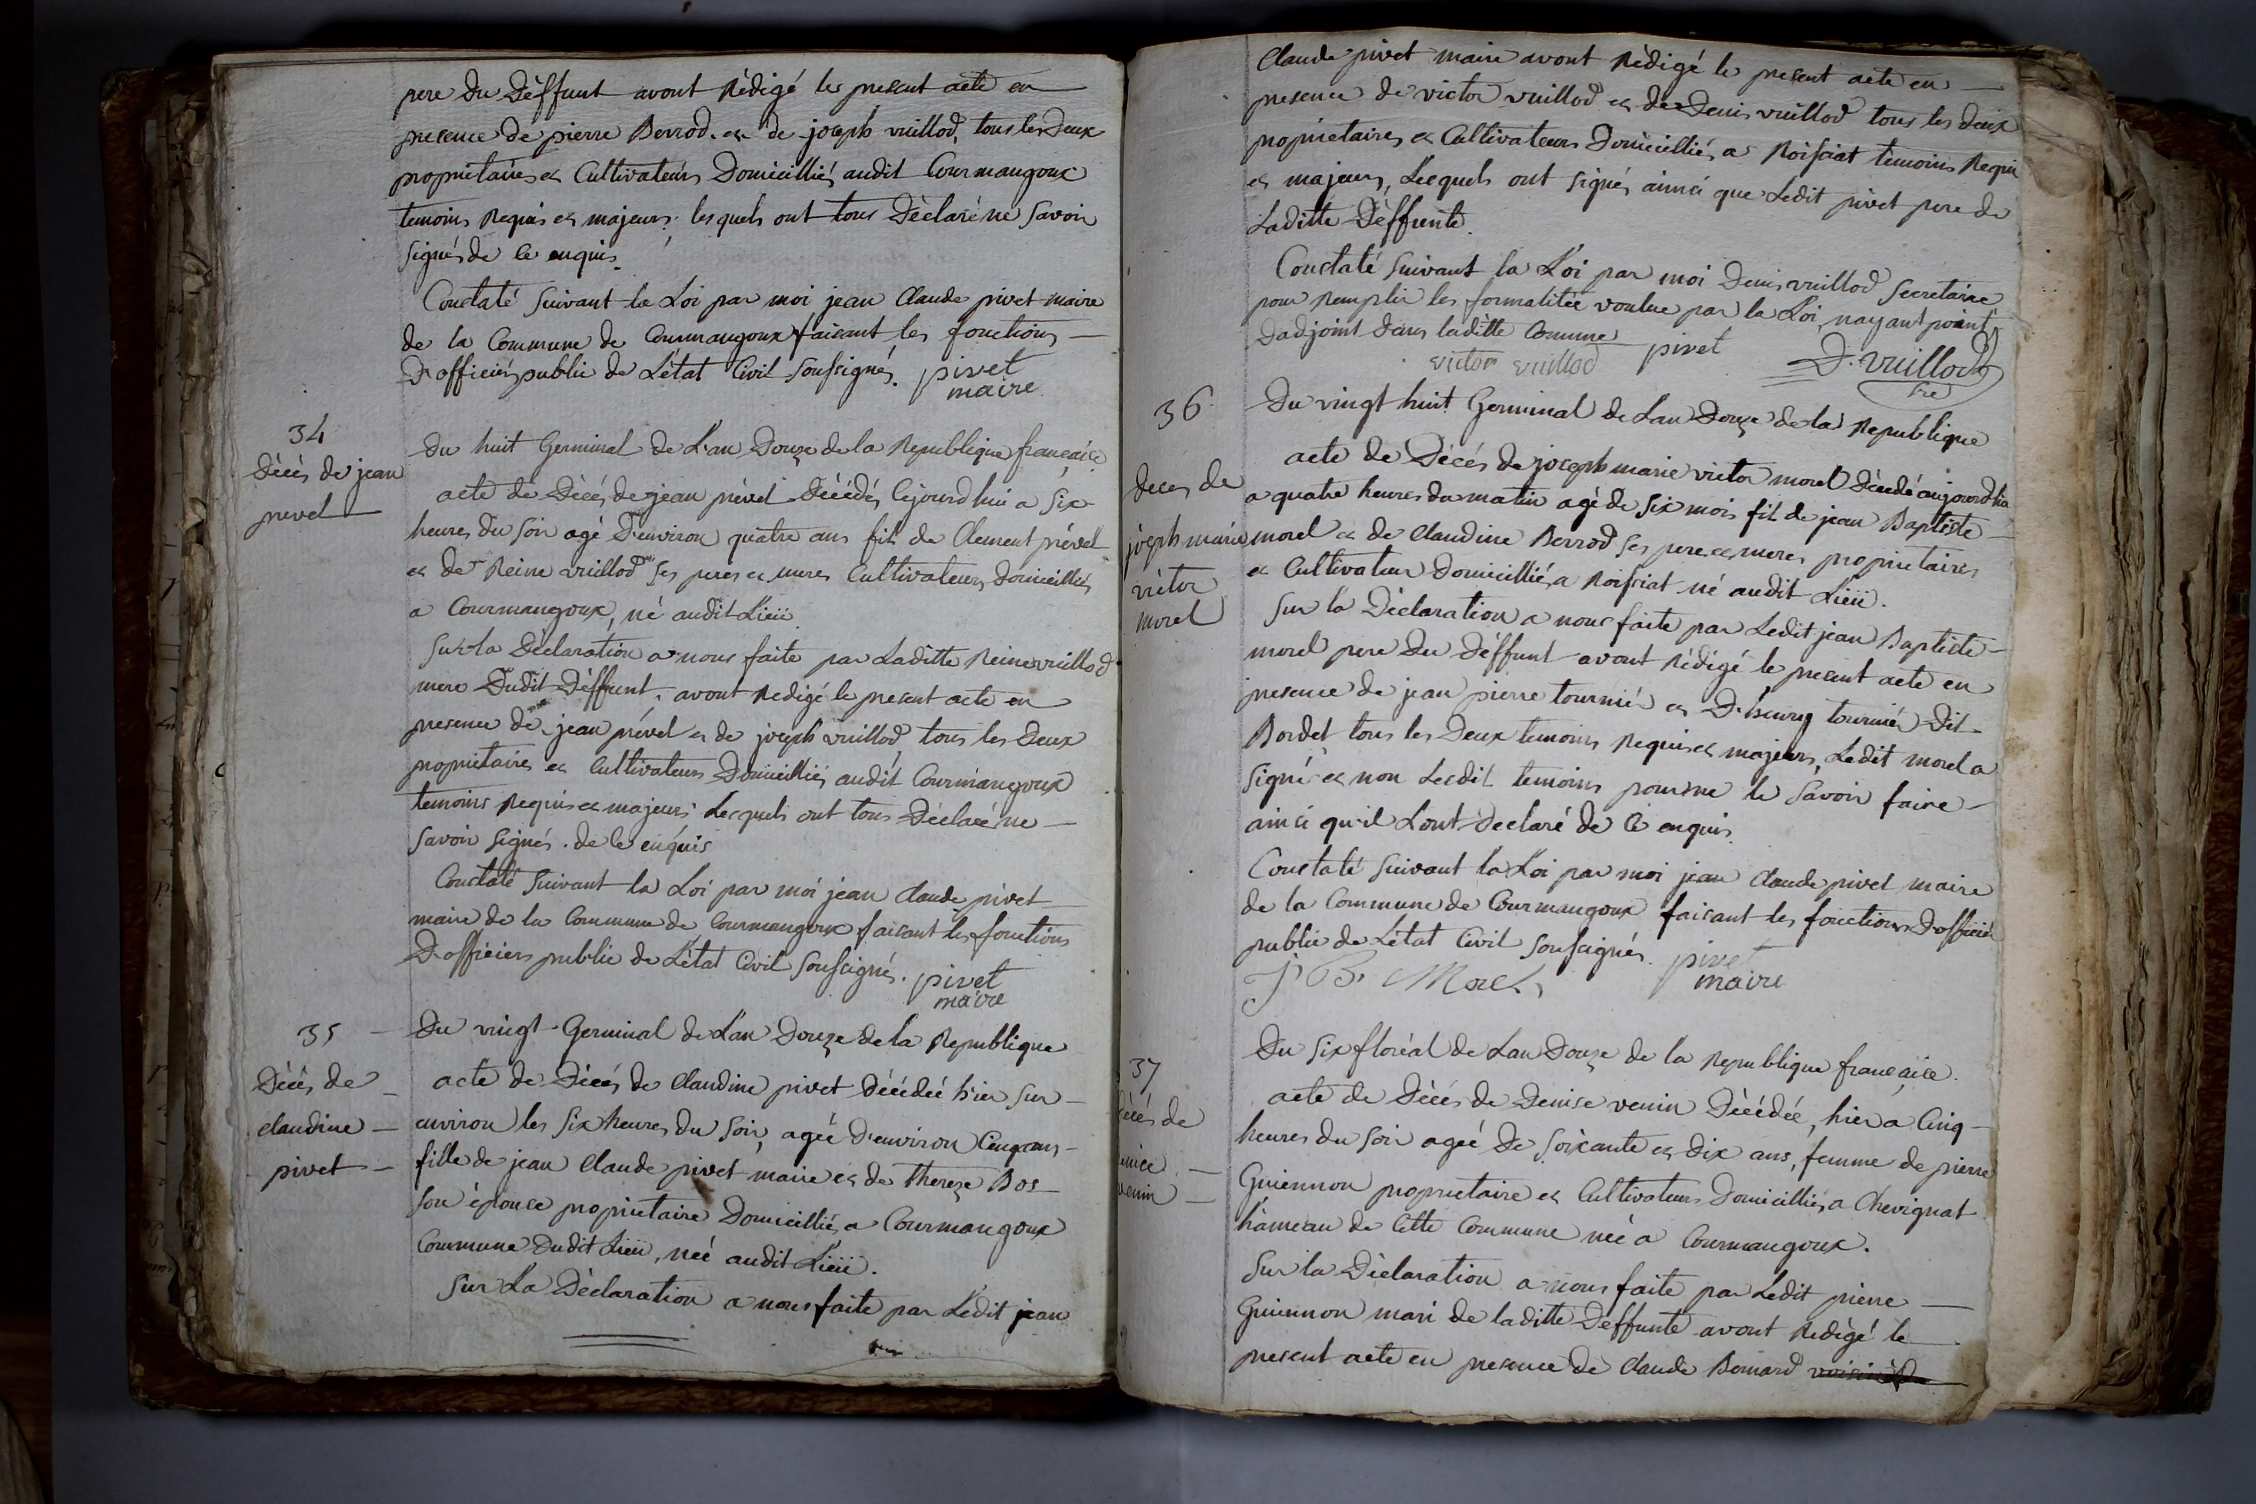 pere du déffunt avont rédigé les present acte en
presence de pierre Berrod. et de joseph vuillod, tous les deux
propriétaires et Cultivateurs Domicilliés audit Courmangoux
temoins requis et majeurs. lesquels ont tous Déclaré ne savoir
signés de ce enquis.
Constaté suivant la Loi par moi jean Claude pivet maire
de la Commune de Courmangoux faisant les fonctions
D'officiers public de L'état Civil soussignés. pivet
maire
34
Décès de jean
prevel
Du huit Germinal de L'an Douze de la Republique francaise
acte de Décés de jean prével Décédés Cejourd'hui a six
heures du soir agé D'environ quatre ans fils de Clement prével
et de Reine vuillod ses peres et meres Cultivateurs domicilliés
a Courmangoux, né audit Lieu.
Sur la Déclaration a nous faite par Laditte Reine vuillod
mere Dudit Déffunt. avont redigé le present acte en
presence de jean prével et de joseph vuillod tous les deux
propriétaires et Cultivateurs Domicilliés audit Courmangoux
temoins requis et majeurs Lesquels ont tous Déclaré ne
savoir signés. de ce enquis
Constaté suivant la Loi par moi jean Claude pivet
maire de la Commune de Courmangoux faisant les fonctions
D'officiers public de L'état Civil soussignés. pivet
maire
35
Décès de
claudine
pivet
Du vingt Germinal de L'an Douze de la Republique
acte de Décés de Claudine pivet Décédée hier sur
environ les six heures du soir, agée d'environ Cinq ans
fille de jean Claude pivet maire et de thereze Bos
son épouse propriétaire Domicilliés a Courmangoux
Commune dudit Lieu, neé audit Lieu.
Sur La Déclaration a nous faite par Ledit jean
Claude pivet maire avont rédigé le present acte en
presence de victor vuillod et de Denis vuillod tous les deux
propriétaires et Cultivateurs Domicilliés a Roissiat temoins Requis
et majeurs, Lesquels ont signés ainsi que Ledit pivet pere de
Laditte Déffunte.
Constaté suivant la Loi par moi Denis vuillod Secretaire
pour remplir les formalitée voulue par la Loi, nayant point
Dadjoint dans laditte Comune pivet
victor vuillod D. vuillod
sre
36
Deces de
joseph marie
victor
morel
Du vingt huit Germinal de Lan Douze de la Republique
acte de Décés de joseph marie victor morel Décédé aujourdhui
a quatre heures du matin agé de six mois fils de jean Baptiste
morel et de Claudine Berrod ses pere et meres propriétaires
et Cultivateur Domicilliés a Roissiat né audit Lieu.
Sur la Déclaration a nous faite par Ledit jean Baptiste
morel pere Du Déffunt avont rédigé le present acte en
presence de jean pierre tournié et D. henry tournié Dit
Bordet tous les deux temoins requis et majeurs, Ledit morel a
signé et non Lesdit temoins pour ne le savoir faire
ainsi qu'il L'ont declaré de ce enquis.
Constaté suivant la Loi par moi jean Claude pivet maire
de la Commune de Courmangoux faisant les fonctions D'officiés
public de L'état Civil soussignés. pivet
J B Morel maire
37
Décés de
venin
Du six floréal de Lan Douze de la republique francaise.
acte de Décés de Denise venin Décédée, hier a Cinq
heures du soir ageé De soixante et dix ans, femme de pierre
Guiennon propriétaire et Cultivateurs Domicilliés a Chevignat
hameau de Cette Commune née a Courmangoux.
Sur la Déclaration a nous faite par Ledit pierre
Guiennon mari de laditte Deffunte avont Redigé le
present acte en presence de Claude Bernard